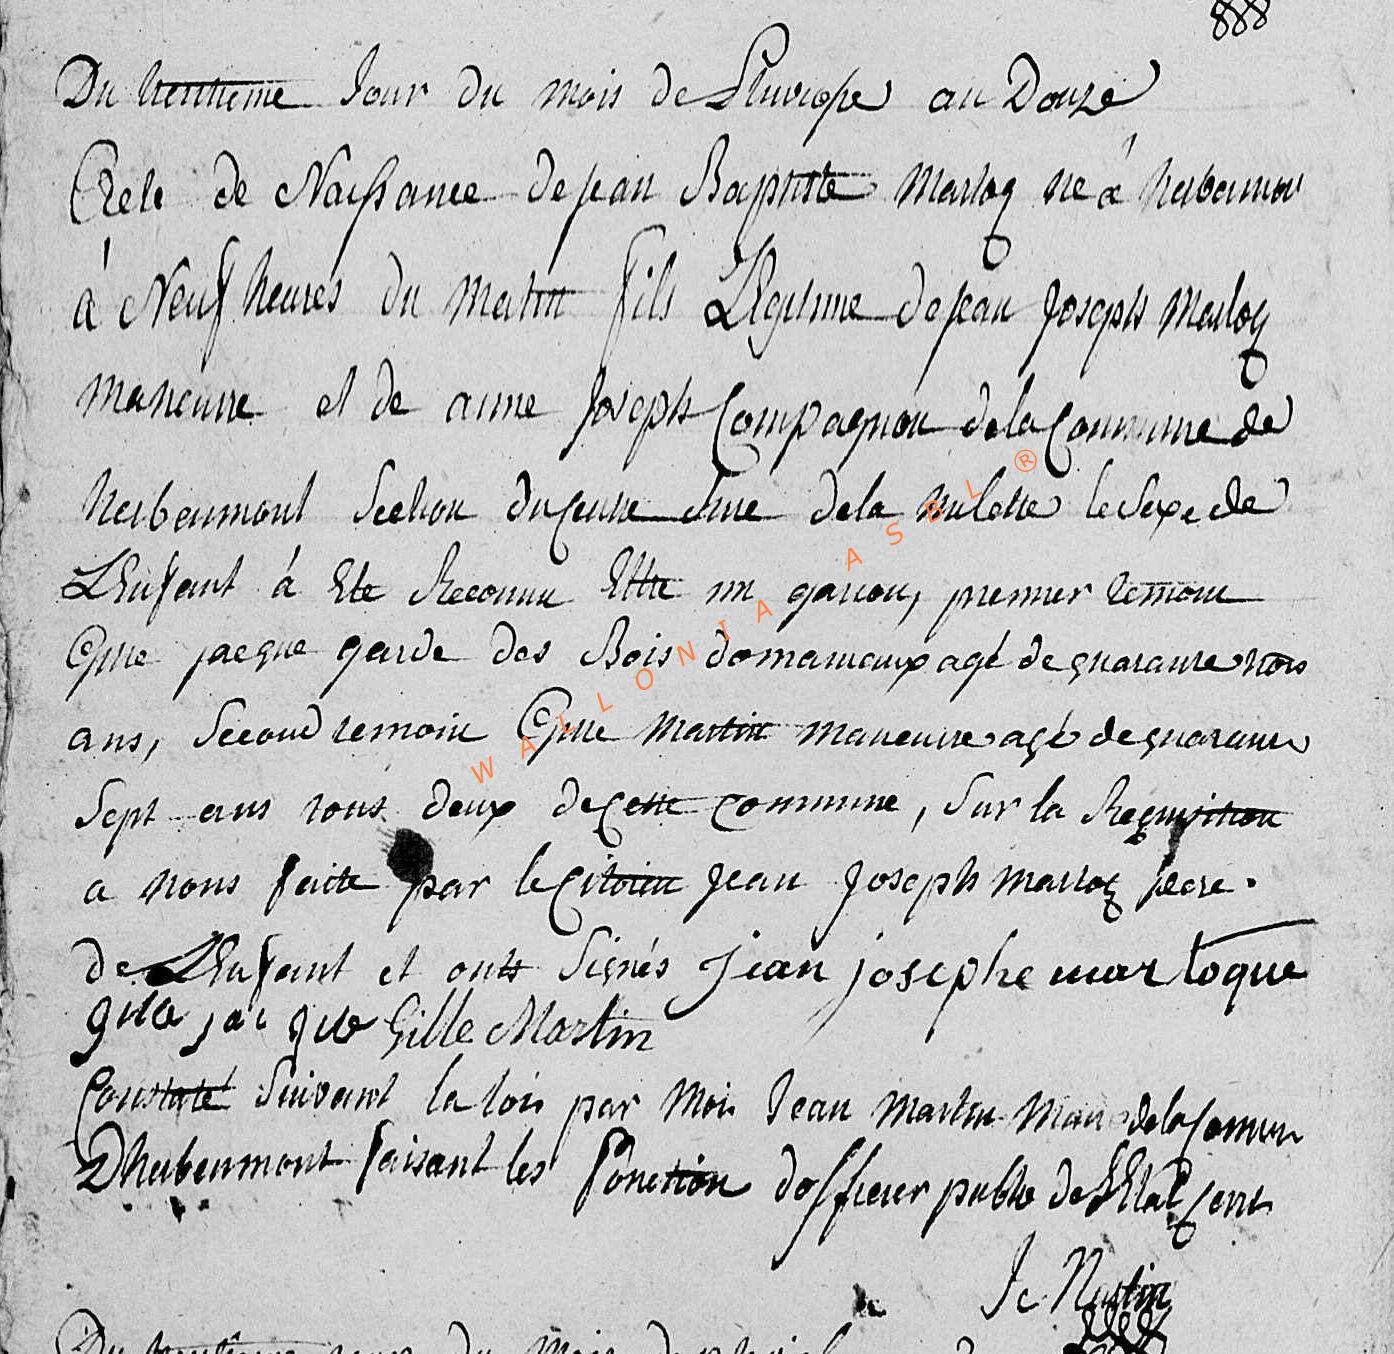 Du trentieme Jour du mois de Pluviose an Douze
Acte de Naissance de jean Baptiste Marloq né à herbeumont
à Neuf heures du Matin fils Legitime de jean joseph Marloq
maneuvre et de anne joseph Compagnon de la Commune de
herbeumont Section du rue de la le Sexe de
LEnfant à Ete Reconnu Ettre un garcon, premier temoin
Gille jacque garde des Bois domaniaux agé de quarante trois
ans, Second temoin Gille Martin maneuvre agé de quarante
Sept ans tous deux de Cette Commune, Sur la Requisition
a nous faitte par le Citoien jean joseph marloq pere.
de LEnfant et ontt Signés jean josephe marloque
gille jac que Gille Martin
Constaté Suivant la lois par moi Jean martin Maire de la Comune
Dherbeumont faisant les fonction dofficier public de LEtat Civil
J Martin
WALLONIA ASBL ®
Du trentieme jour du Mois de